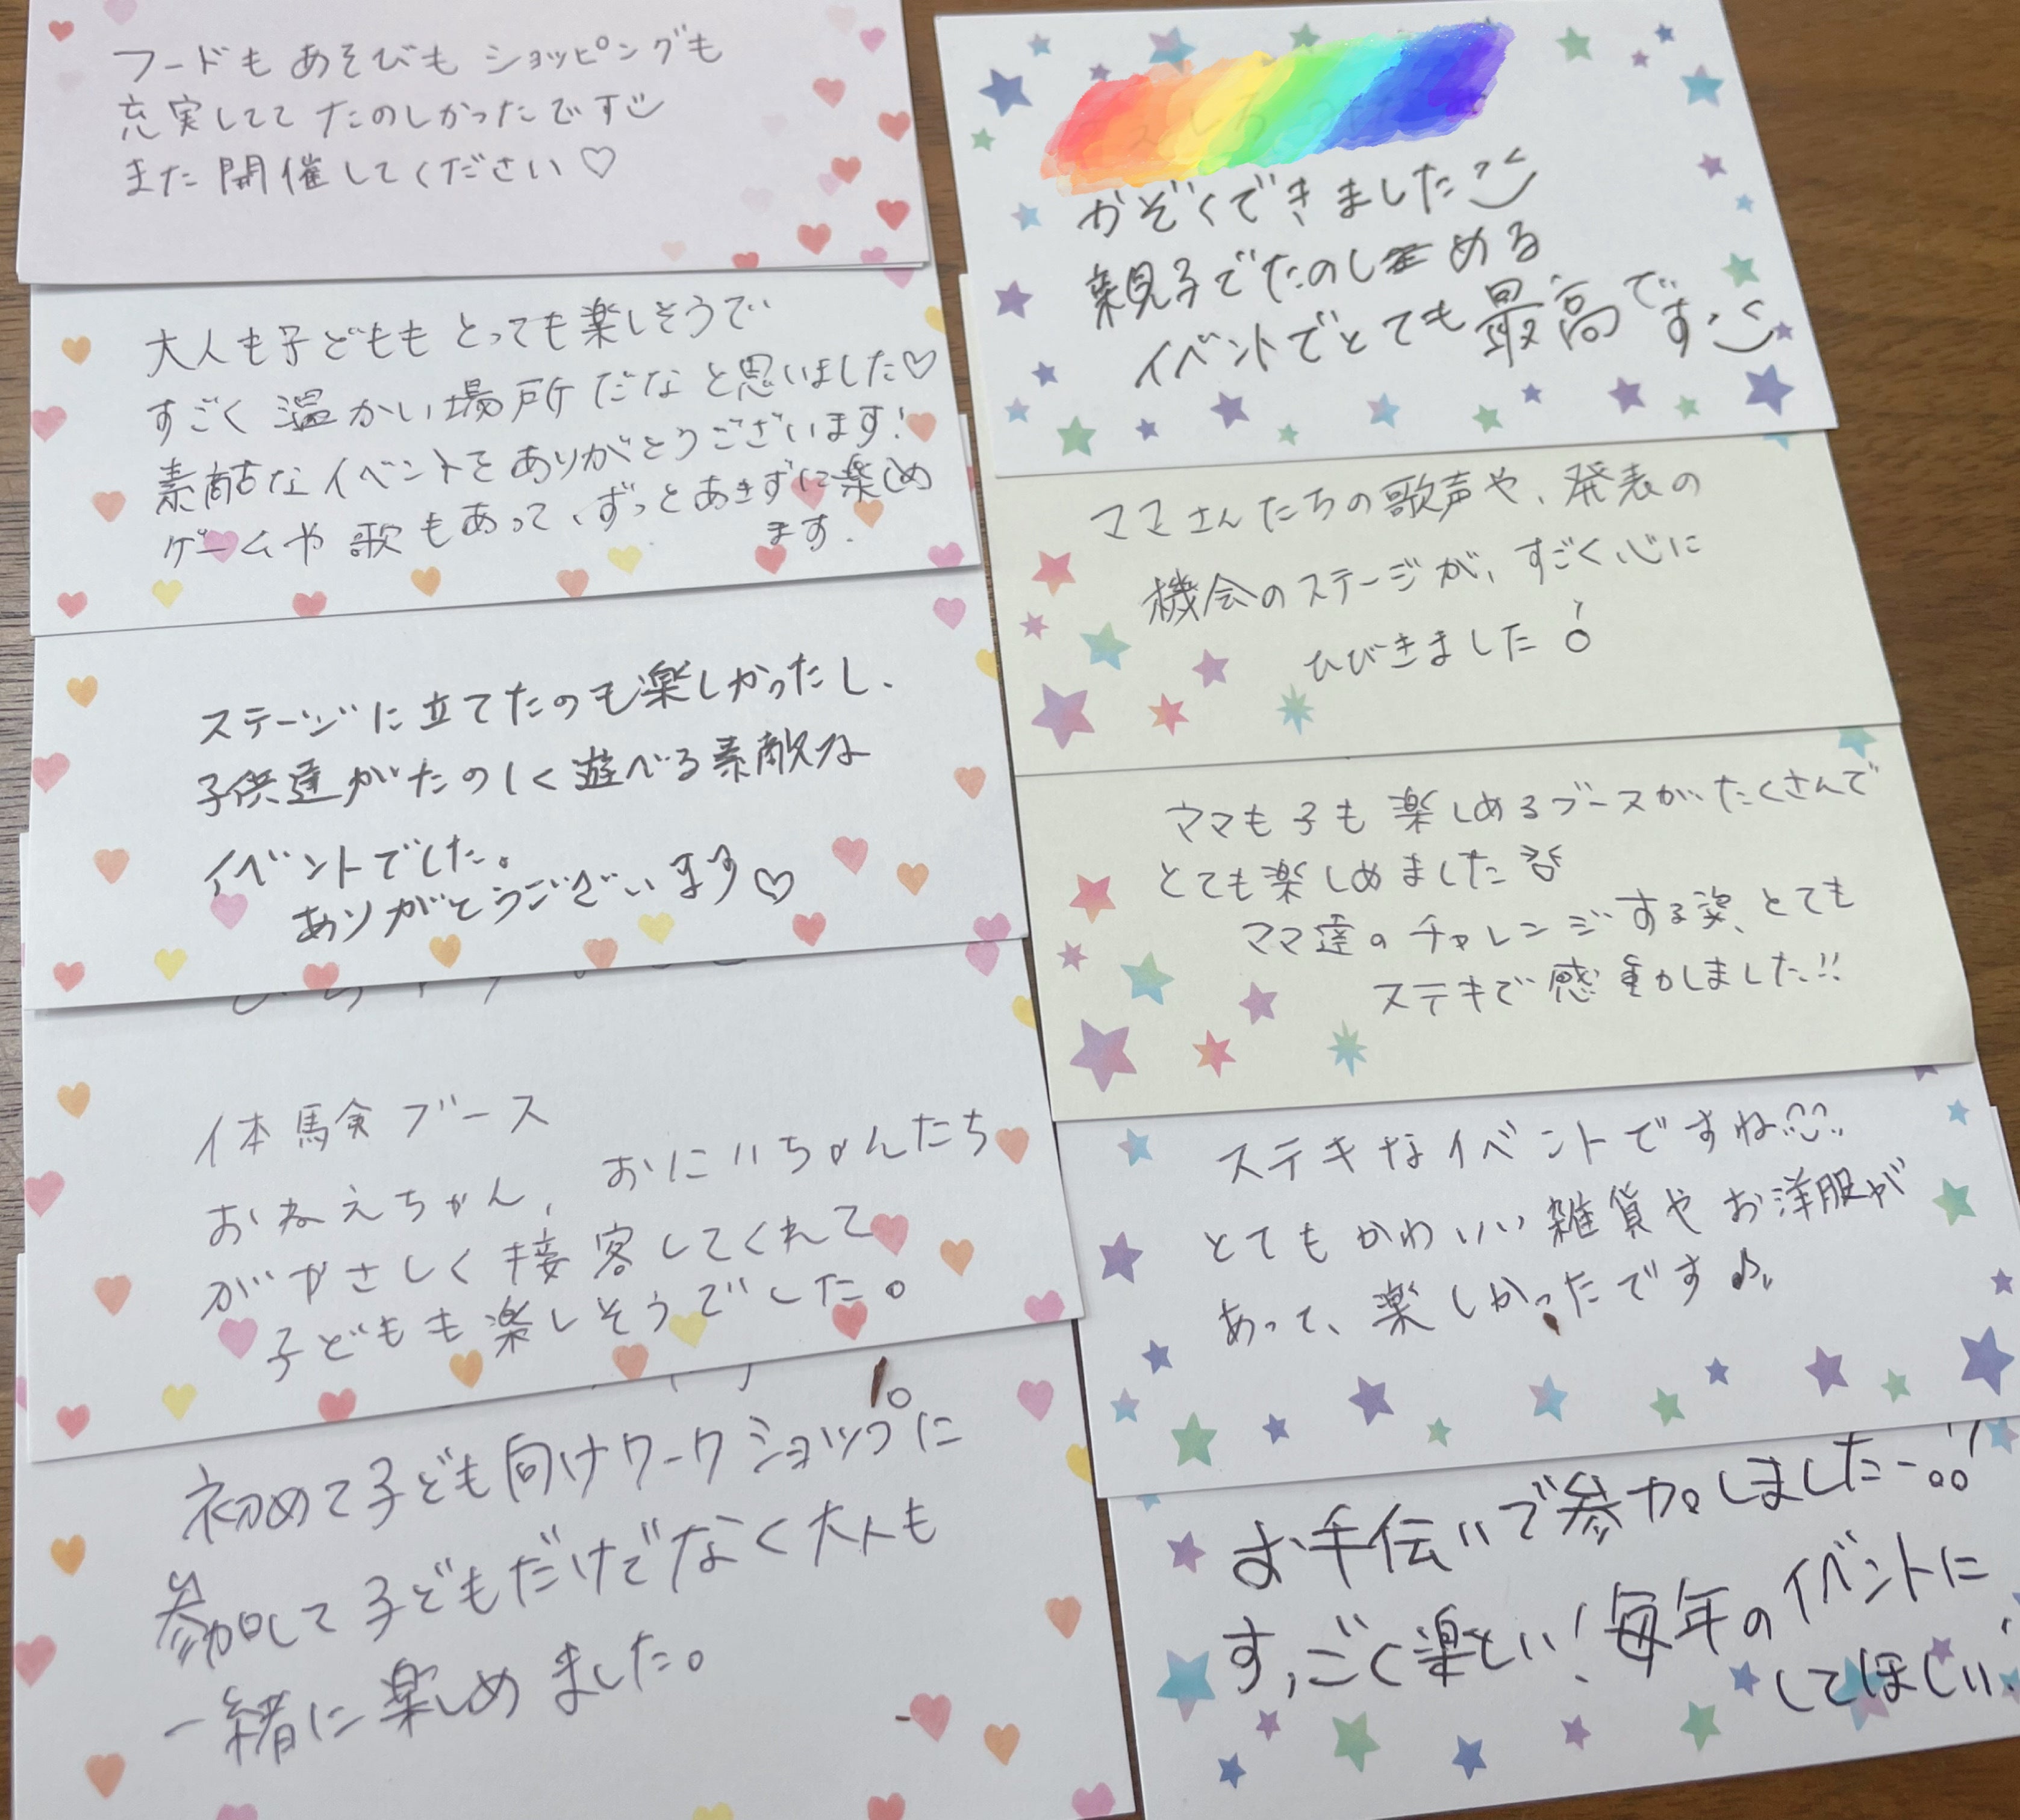 フードもあそびもショッピングも
充実してて たのしかったです
また開催してください♡
大人も子どもも とっても楽しそうで
すごく 温かい場所だなと思いました♡
素敵なイベントをありがとうございます!
ゲームや歌もあって、ずっとあきずに楽しめ
ます.
ステージに立てたのも楽しかったし、
子供達がたのしく遊べる素敵な
イベントでした。
ありがとうございます♡
体験ブース
おねえちゃん、おにいちゃんたち
がやさしく接客してくれて
子どもも楽しそうでした。
初めて子ども向けワークショップに
参加して子どもだけでなく大人も
一緒に楽しめました。
かぞくできました
親子でたのしめる
イベントでとても最高です
ママさんたちの歌声や、発表の
機会のステージが、すごく心に
ひびきました
ママも子も楽しめるブースがたくさんで
とても楽しめました
ママ達のチャレンジする姿、とても
ステキで感動しました!!
ステキなイベントですね
とてもかわいい雑貨やお洋服が
あって、楽しかったです♪
お手伝いで参加しましたー
すっごく楽しい!毎年のイベントに
してほしい!